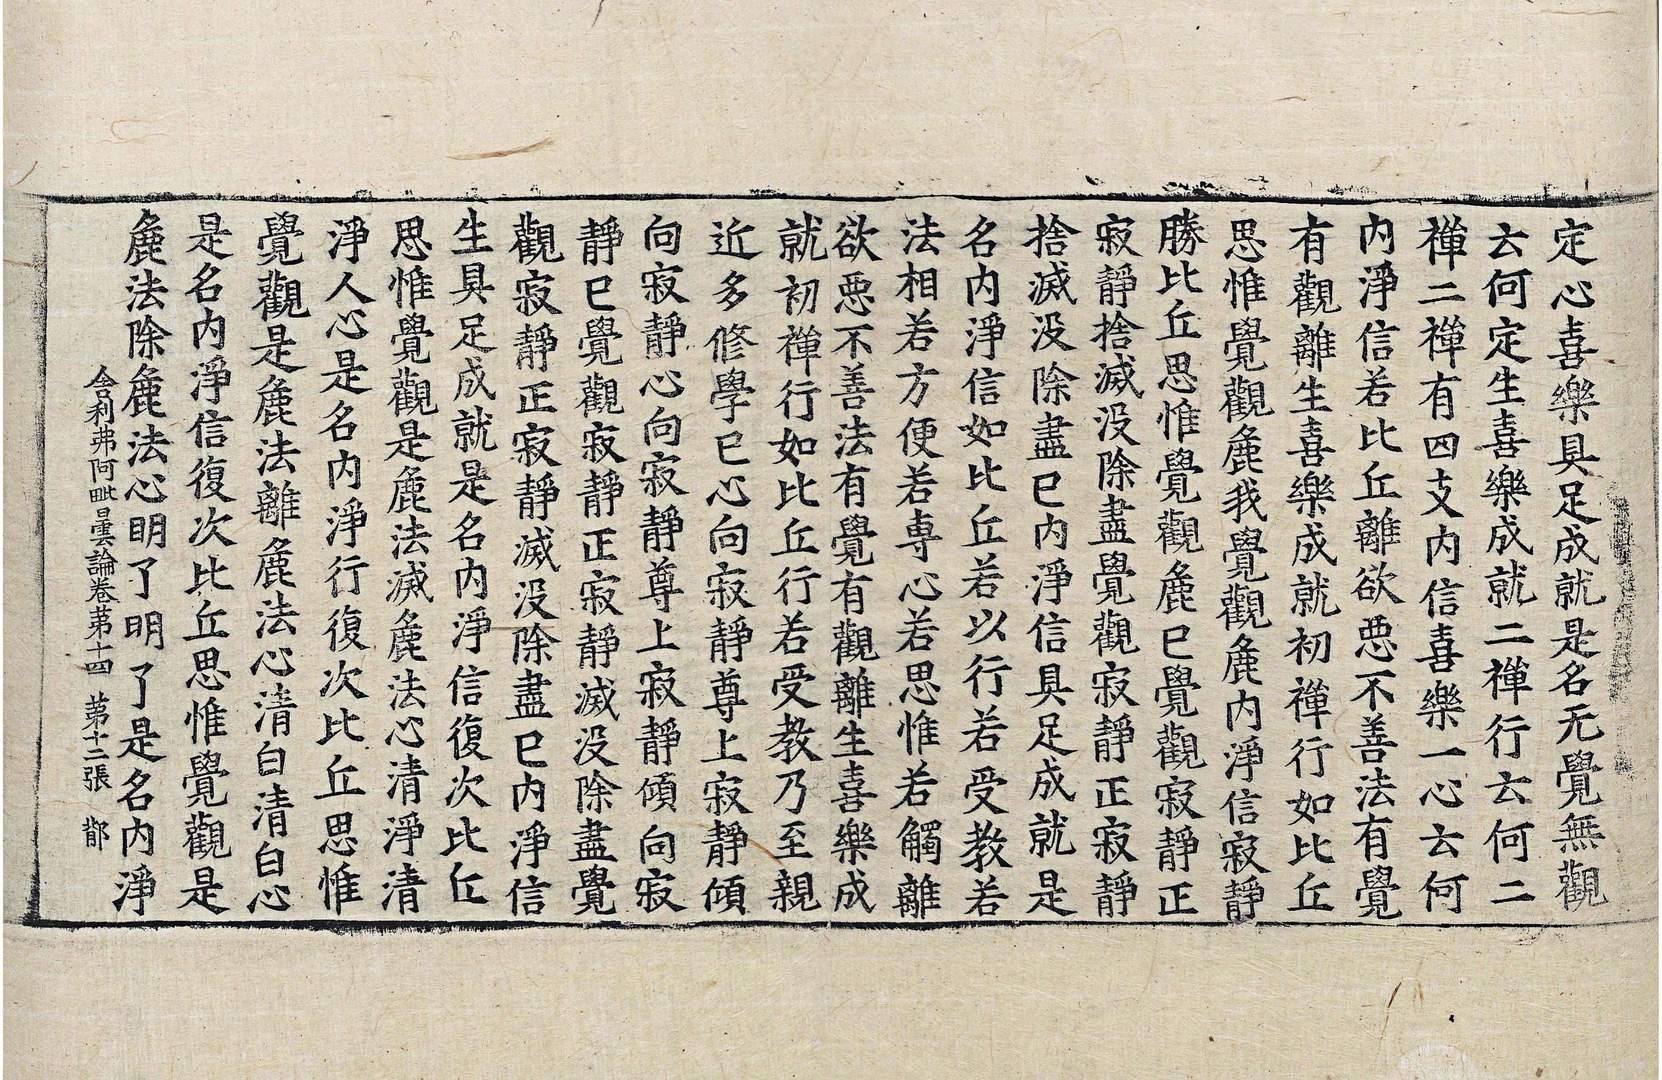 定心喜樂具足成就是名无覺無觀
云何定生喜樂成就二禪行云何二
禪二禪有四支内信喜樂一心云何
内淨信若比丘離欲惡不善法有覺
有觀離生喜樂成就初禪行如比丘
思惟覺觀麁我覺觀麁内淨信寂靜
勝比丘思惟覺觀麁已覺觀寂靜正
寂靜捨滅没除盡覺觀寂靜正寂靜
捨滅没除盡已内淨信具足成就是
名内淨信如比丘若以行若受教若
法相若方便若専心若思惟若觸離
欲惡不善法有覺有觀離生喜樂成
就初禪行如比丘行若受教乃至親
近多修學已心向寂靜尊上寂靜傾
向寂靜心向寂靜尊上寂靜傾向寂
靜已覺觀寂靜正寂靜滅没除盡覺
觀寂靜正寂靜滅没除盡已内淨信
生具足成就是名内淨信復次比丘
思惟覺觀是麁法滅麁法心清淨清
淨人心是名内淨行復次比丘思惟
覺觀是麁法離麁法心清白清白心
是名内淨信復次比丘思惟覺觀是
麁法除麁法心明了明了是名内淨
舎利弗阿毗曇論卷苐十四 苐十二張 鄁